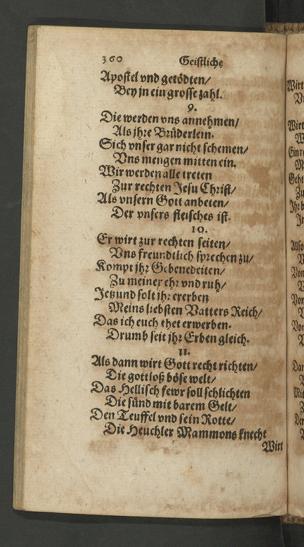 360 Geistliche
Apostel vnd getödten/
Bey jn ein grosse zahl.
9.
Die werden vns annehmen/
Als jhre Brüderlein.
Sich vnser gar nicht schemen/
Vns mengen mitten ein.
Wir werden alle treten
Zur rechten Jesu Christ/
Als vnsern Gott anbeten/
Der vnsers fleisches ist.
10.
Er wirt zur rechten seiten/
Vns freundtlich sprechen zu/
Kompt jhr Gebenedeiten/
Zu meiner ehr vnd ruh/
Jetzund solt jhr ererben
Meins liebsten Vatters Reich/
Das ich euch thet erwerben.
Drumb seit jhr Erben gleich.
11.
Als dann wirt Gott recht richten/
Die gottloß böse welt/
Das Hellisch fewr soll schlichten
Die sünd mit barem Gelt/
Den Teuffel vnd sein Rotte/
Die Heuchler Mammons knecht
Wirt